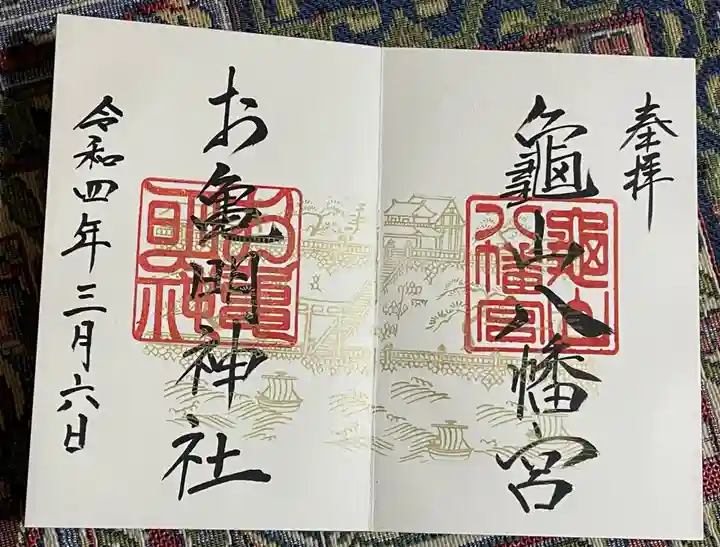 奉拝
龜山八幡宮
龜山
八幡宮
お亀明神社
令和四年三月六日